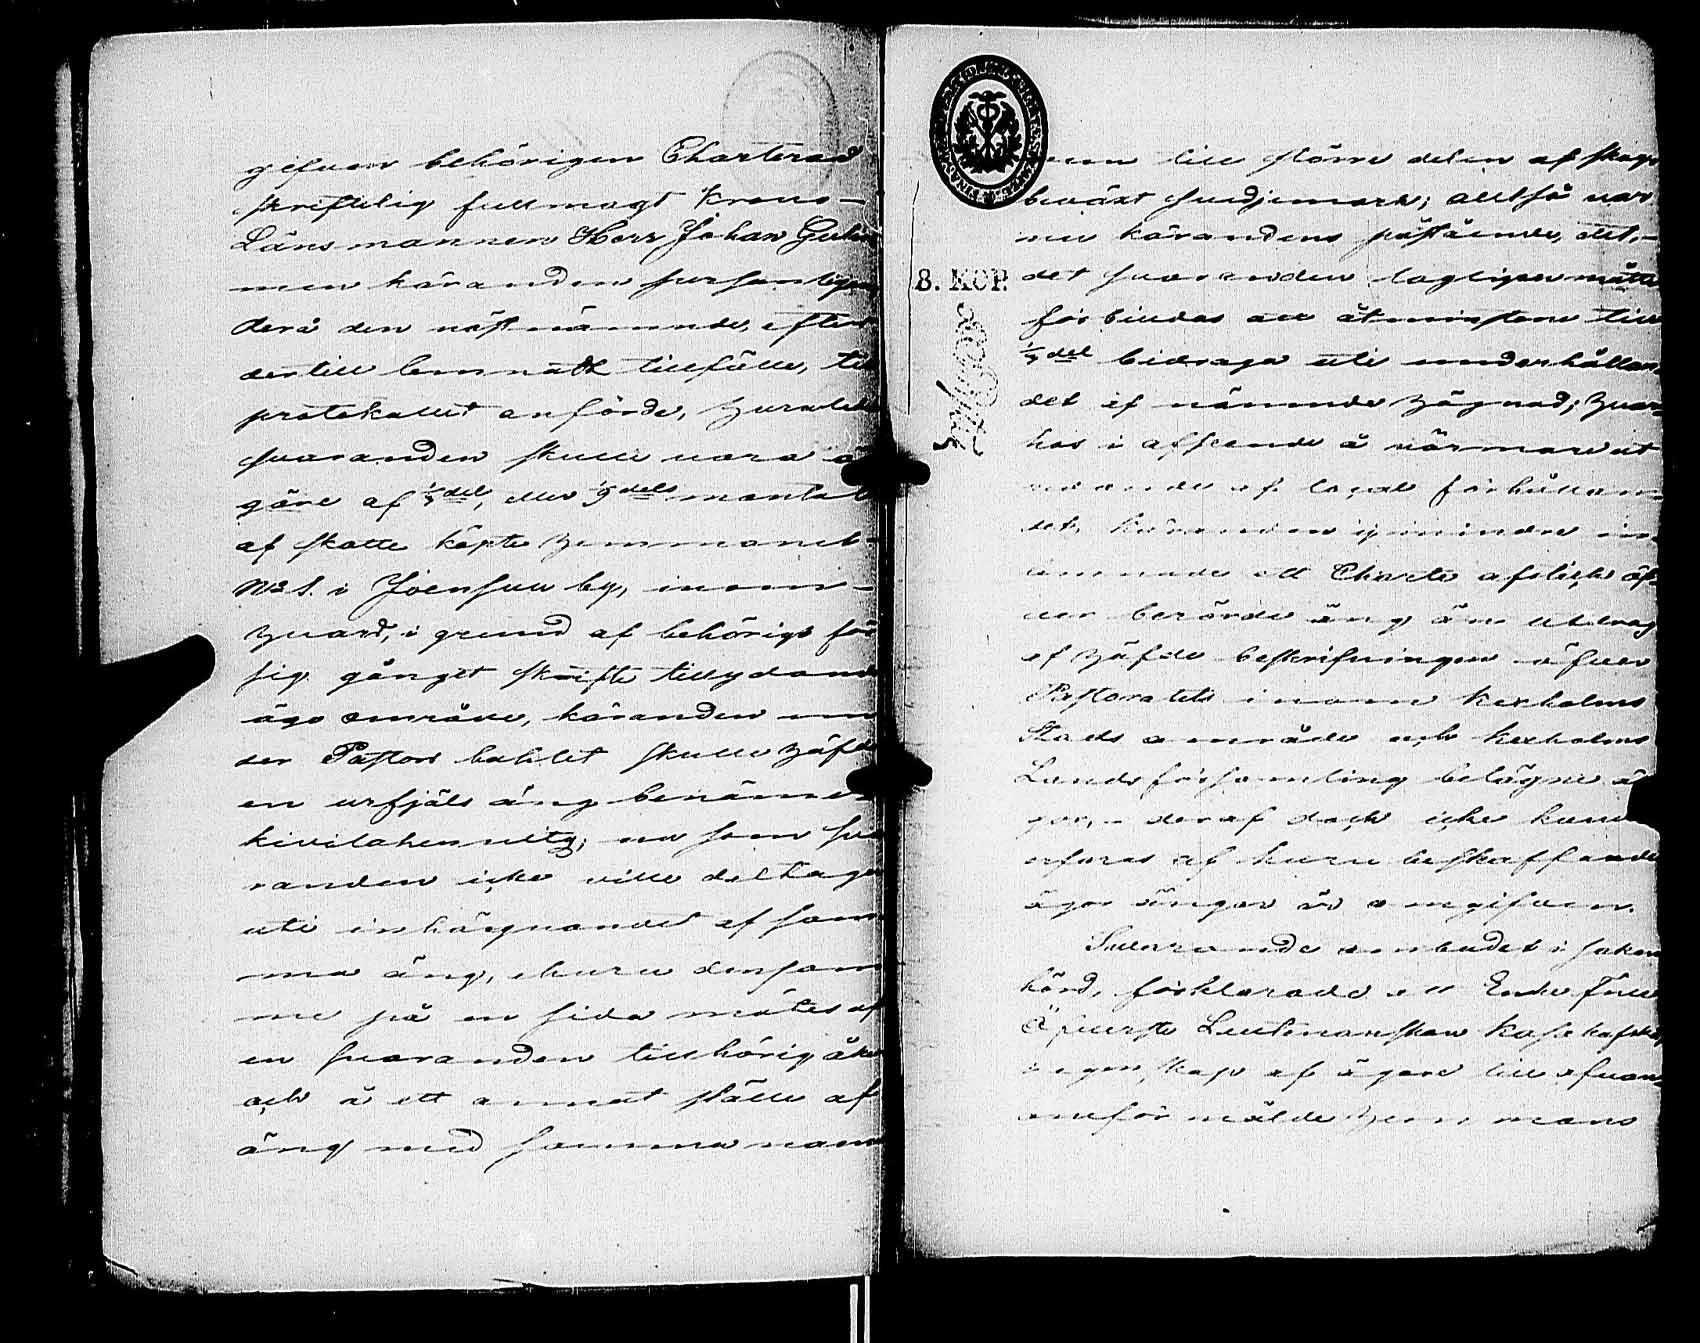 gifven behörigen Charterad
skriftelig fullmagt Krono-
Läns mannen Herr Johan
men käranden personligen
derå den näst nämnde, efter
dertill lemnadt tillfälle, till
protokollet anförde, hurule
svaranden skulle vara ä
gare af 1/9 del, eller 1/9 dels mantal
af skatte köpte hemmanet
No 1. i Joensuu by, inom
hvars, i grund af behörigt för
sig gånget skifte tillydande
ägo område, käranden un
der Pastors bohlet skulle häfda
en urfjäls äng benämnd
Kivilahennitty; no som sva
randen icke ville deltaga
uti inhägnandet af sam
ma äng, ehuru densam
me på en sida mötes af
en svaranden tillhörig åker
och å ett annat ställe af
äng med samma namn
men till större delen af skog
beväxt svedjemark; alltså var
nu kärandens påstående, att
det svaranden lagligen måtte
förbindas att åtminstone till
8. KOP.
1/9 del bidraga uti underhållan
det af nämnde hägnad; hvar
hos i afseende å närmare ut
redande af locale förhållan
det, käranden ej mindre in
lemnade ett Charte aftryck öf
ver berörde äng än utdrag
af häfde beskrifningen öfver
Pastoratets inom Kexholms
Stads område och Kexholms
Lands församling belägne ä
gor, deraf doch icke kunde
erfaras af huru beskaffande
ägor ängen är omgifven.
Svarande ombudet i saken
hörd, förklarade att Enke Frue
Öfverste Leutnanskan
i egenskap af ägare till ofvan
anförmälde hemmans